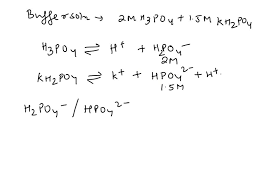 Buffer soln → 2M H3PO4 + 1.5M KH2PO4
H3PO4 ⇌ H+ + H2PO4−
2M
KH2PO4 ⇌ K+ + HPO4^2− + H+
1.5M
H2PO4− / HPO4^2−